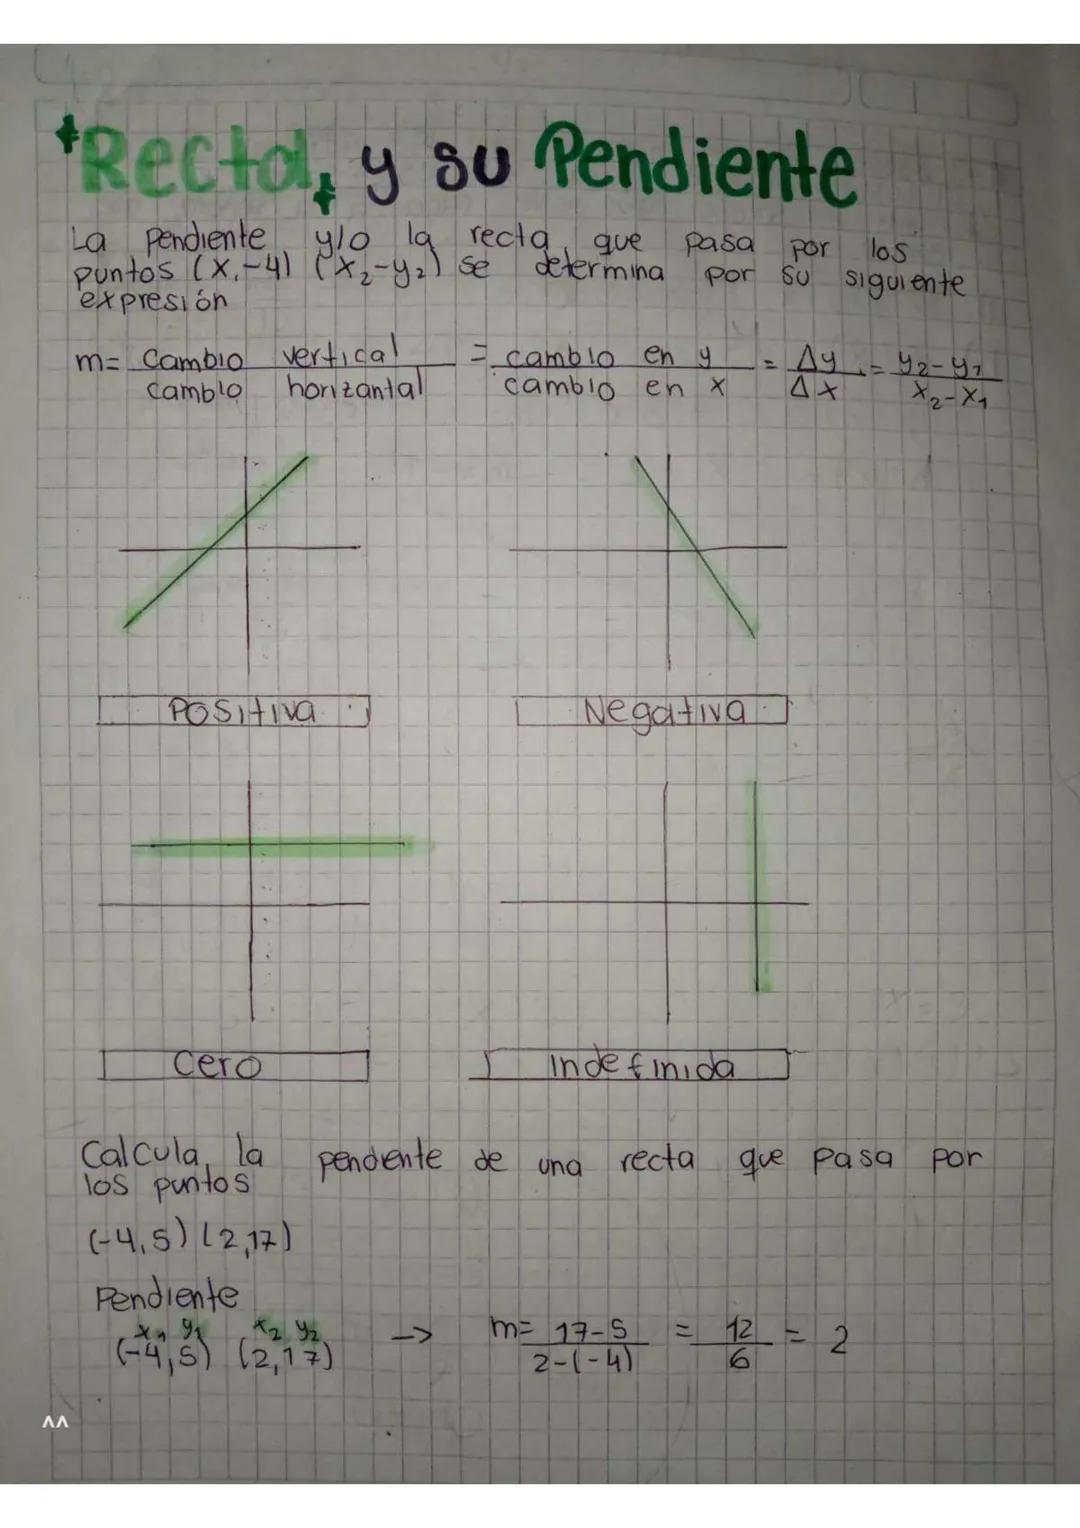 Recta y su Pendiente
La pendiente y/o la recta que pasa por los
puntos (x,-4) (x₂-y₂) se determina por su siguiente
expresión
m= cambio vertical / cambio horizantal = cambio en y / cambio en x = Δy / Δx = y₂-y₁ / x₂-x₁
Positiva
Negativa
Cero
Indefinida
Calcula la pendente de una recta que pasa por
los puntos
(-4,5) (2,17)
Pendiente
x₁ y₁ x₂ y₂
(-4,5) (2,17) -> m= 17-5 / 2-(-4) = 12 / 6 = 2
^^